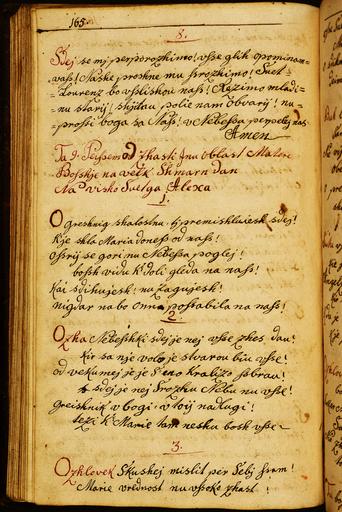 165.
8.
Sdej se mj perporozhimo! vsse glih opominam=
vass! Naske proshne mu Srozhimo! Svet=
Lourenz bo vsslishou nass! Rezimo mladi=
=nu starij! shjtau polie nam obvarij! nu=
=prossi boga sa Nass! v Nebessa perpelej nas
Amen
Ta 9. Peissem od zhasti Jnu oblast Matere
Bosshje na velk Shmarn dan
Na visho Svetga Alexa
1.
O greshnig shalostnu tj premishluiesh sdej!
Kje shla Maria doness od nass!
Osrij se gori nu Nebessa poglej!
bossh vidu K doli gleda na nass!
Kai sdihujesh! nu zagujesh!
nigdar na bo onna possabila na nass!
2.
Ozha Nebeshki sdej je nej vsse zhes dau!
Kir sa nje volo je stvarou biu vsse!
od vekumej je je s'eno Kralizo ssbrau!
sdej je nej Srozhu Nebu nu vsse!
Greishnik v bogi v toij nadlugi!
tezi K' Marie tam nesku bosh vse
3.
Ozhlovek Skushej mislit per Sebj sram!
Marie vrednost nu vssoke zhast!